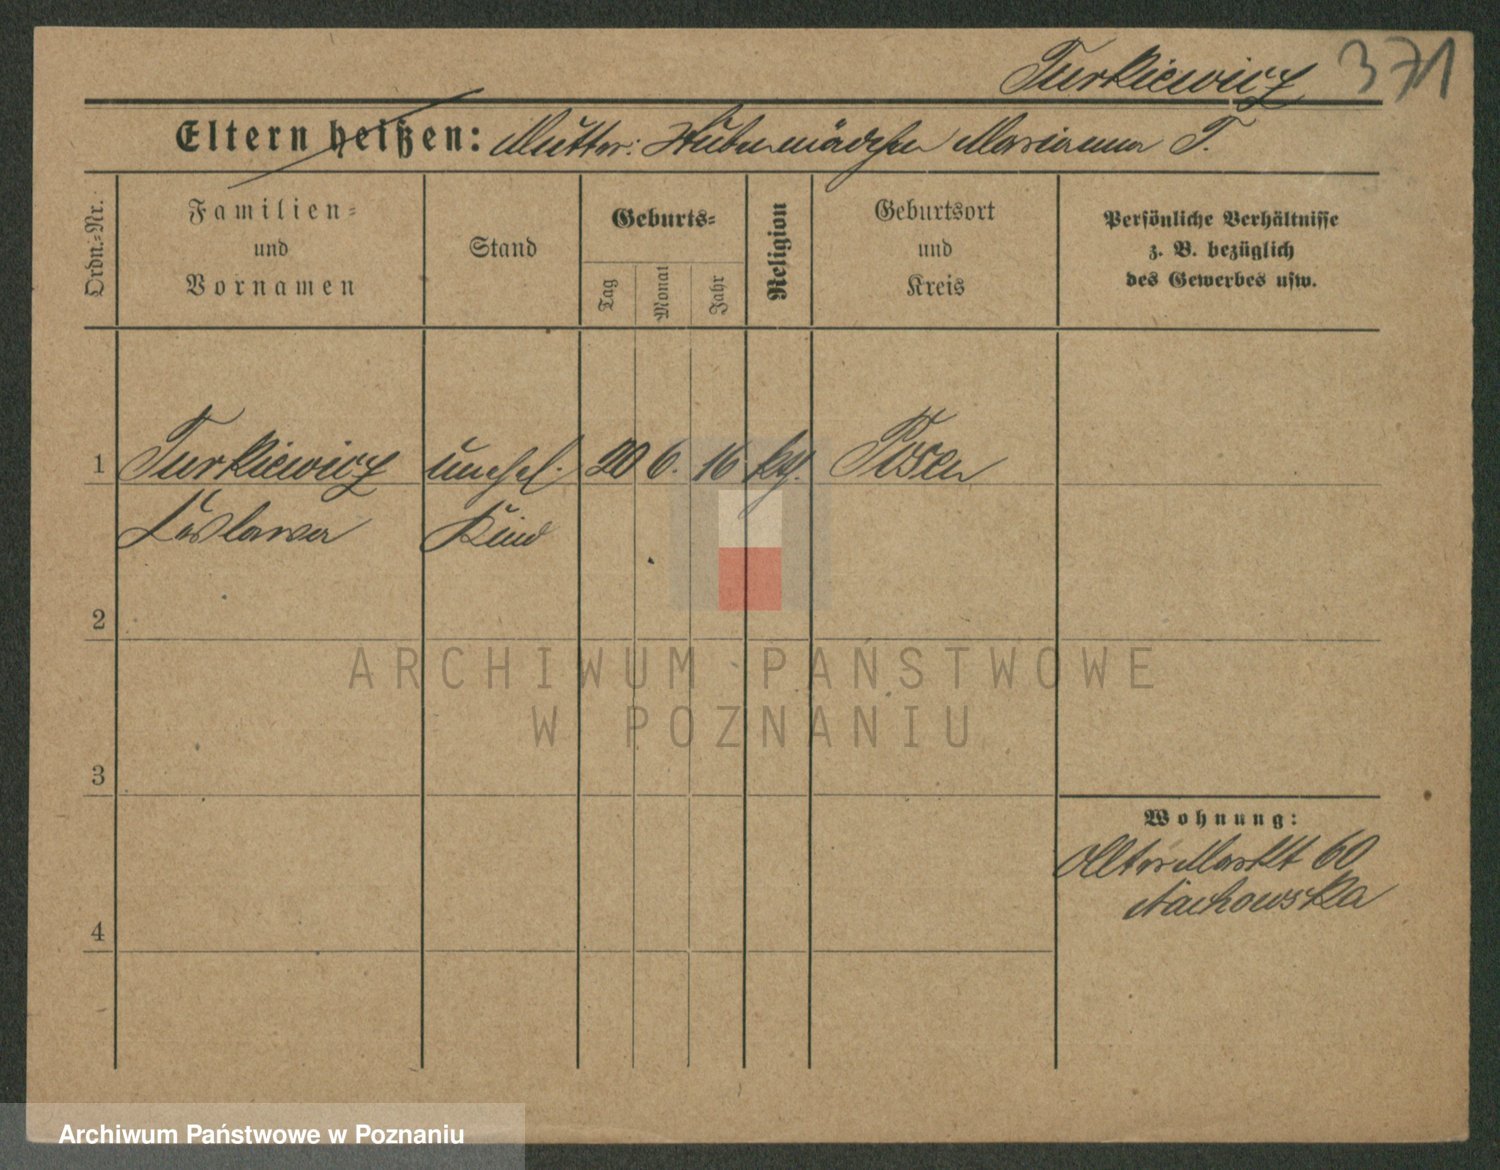 Turkiewicz 371
Eltern heißen: Mutter: Stubenmädchen Marianna T.
Ordn.-Nr.
Familien-
und
Vornamen
Stand
Geburts-
Tag
Monat
Jahr
Religion
Geburtsort
und
Kreis
Persönliche Verhältnisse
z. B. bezüglich
des Gewerbes usw.
1 Turkiewicz unehel. 20 6. 16 kth. Posen
Kind
2
ARCHIWUM PAŃSTWOWE
W POZNANIU
3
Wohnung:
Alter Markt 60
4
Archiwum Państwowe w Poznaniu